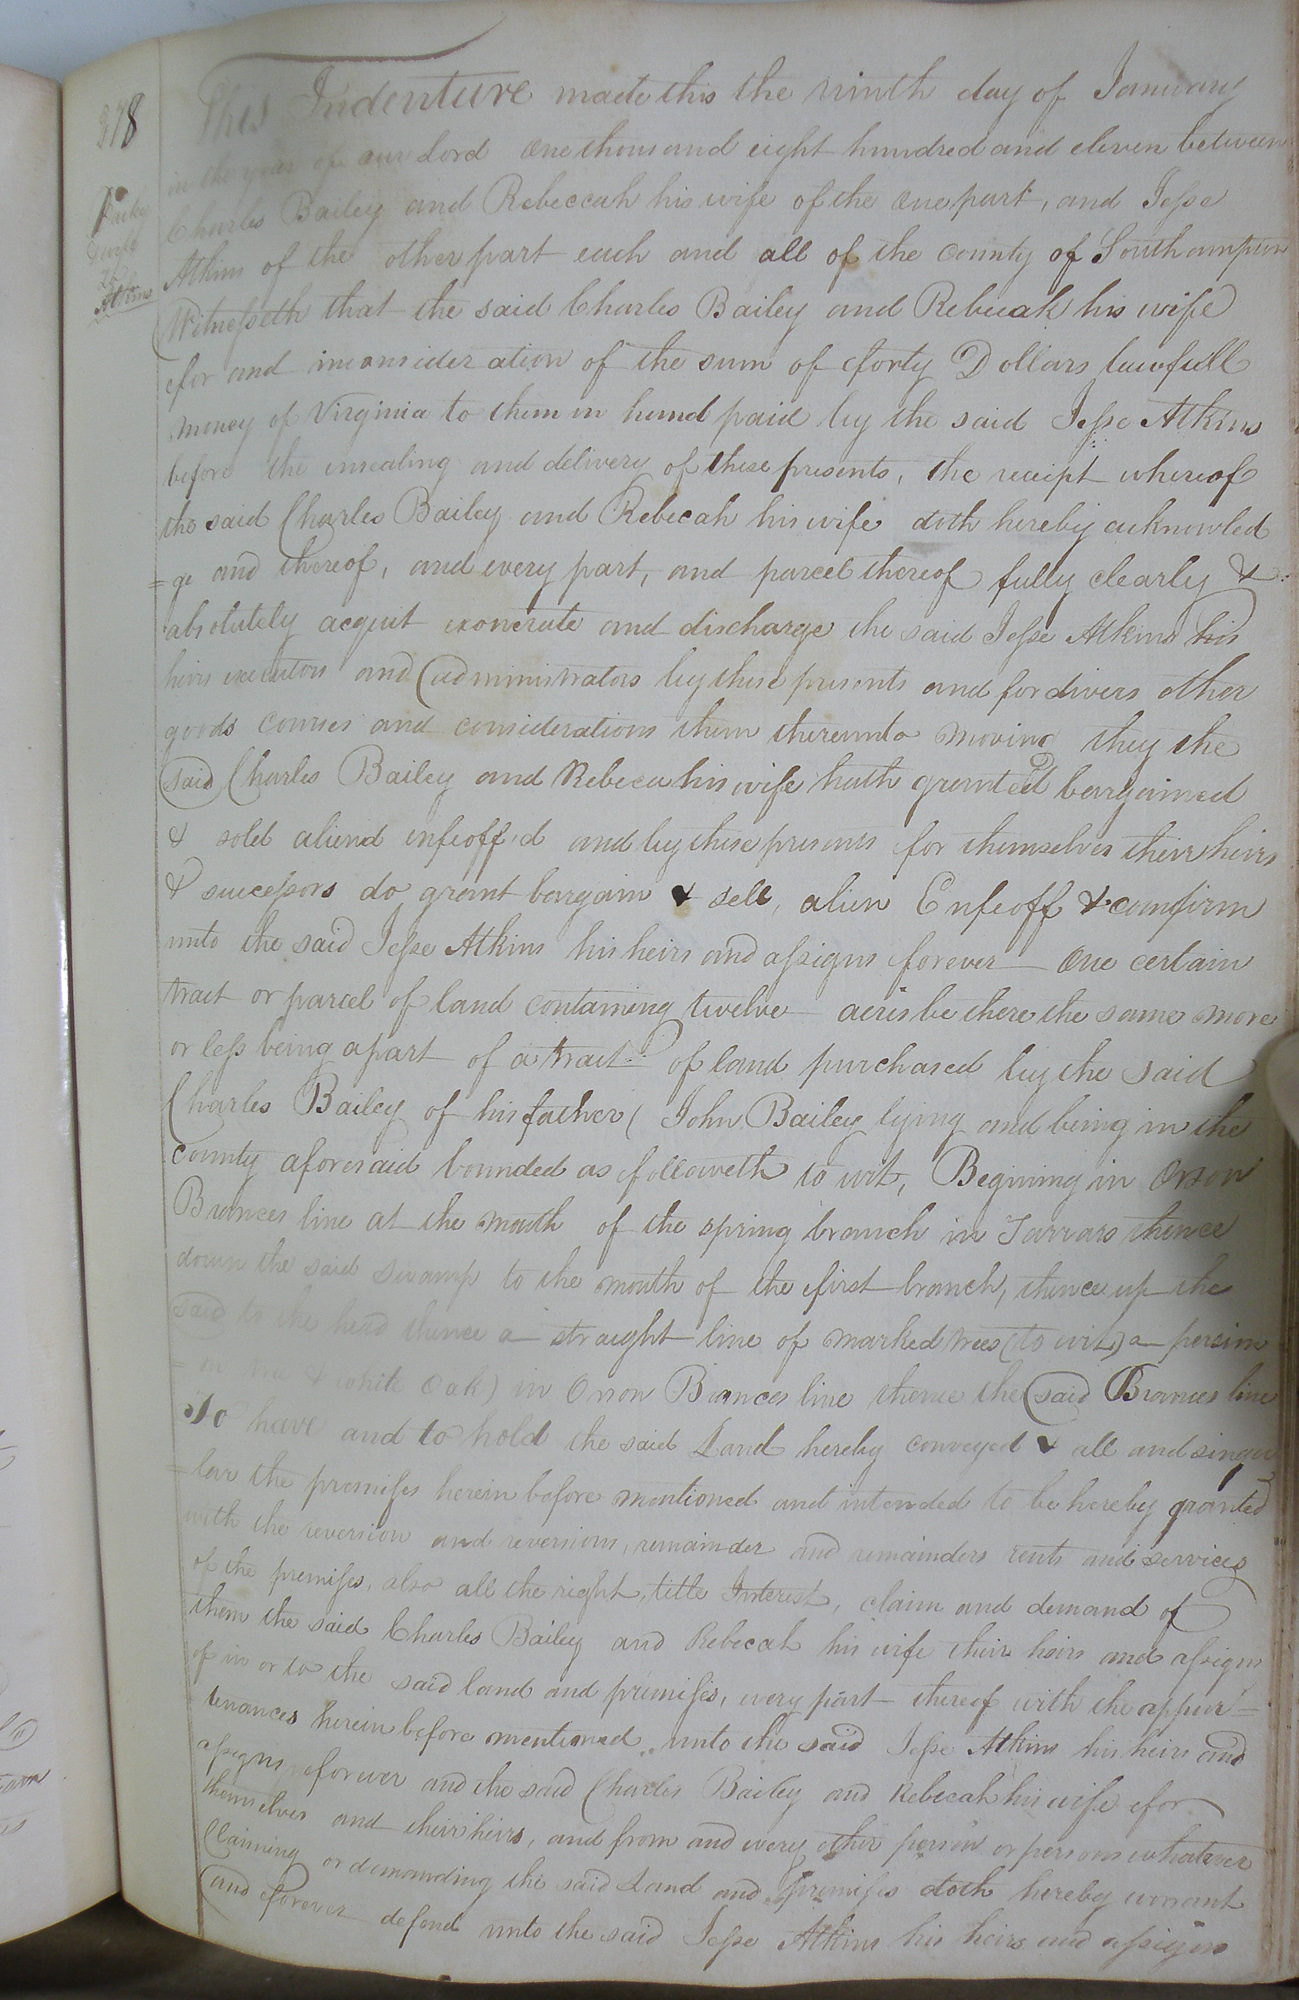 378
This Indenture made this the ninth day of January
in the year of our Lord one thousand eight hundred and eleven between
Charles Bailey and Rebeccah his wife of the one part, and Jesse
Atkins of the other part each and all of the county of Southampton
Witnesseth that the said Charles Bailey and Rebecah his wife
for and inconsideration of the sum of forty Dollars lawfull
money of Virginia to them in hand paid by the said Jesse Atkins
before the ensealing and delivery of these presents, the receipt whereof
the said Charles Bailey and Rebecah his wife doth hereby acknowled
=ge and thereof, and every part, and parcel thereof fully clearly &
absolutely acquit exonerate and discharge the said Jesse Atkins his
heirs executors and administrators by these presents and for divers other
goods courses and considerations them thereunto moving they the
said Charles Bailey and Rebeca his wife hath granted bargained
& sold aliend enfeoff,d and by these presents for themselves their heirs
& successors do grant bargain & sell, alien Enfeoff & confirm
unto the said Jesse Atkins his heirs and assigns forever One certain
tract or parcel of land containing twelve acres be there the same more
or less being a part of a tract of land purchased by the said
Charles Bailey of his father John Bailey lying and being in the
county aforesaid bounded as followeth to wit, Begining in Orson
Brances line at the mouth of the spring branch in Tarrars thence
down the said swamp to the mouth of the first branch, thence up the
said to the head thence a straight line of marked trees (to wit) a persim
=on tree & white Oak) in Orson Brances line thence the said Brances line
To have and to hold the said Land hereby conveyed & all and singu
=lar the premisses herein before mentioned and intended to be hereby granted
with the reversion and reversions, remainder and remainders rents and services
of the premisses, also all the right, title Interest, claim and demand of
them the said Charles Bailey and Rebecah his wife their heirs and assigns
of in or to the said land and premisses, every part thereof with the appur=
tenances herein before mentioned unto the said Jesse Atkins his heirs and
assigns forever and the said Charles Bailey and Rebecah his wife for
themselves and their heirs, and from and every other person or persons whatever
Claiming or demanding the said Land and premisses doth hereby warrant
and forever defend unto the said Jesse Atkins his heirs and assigns
Atkins